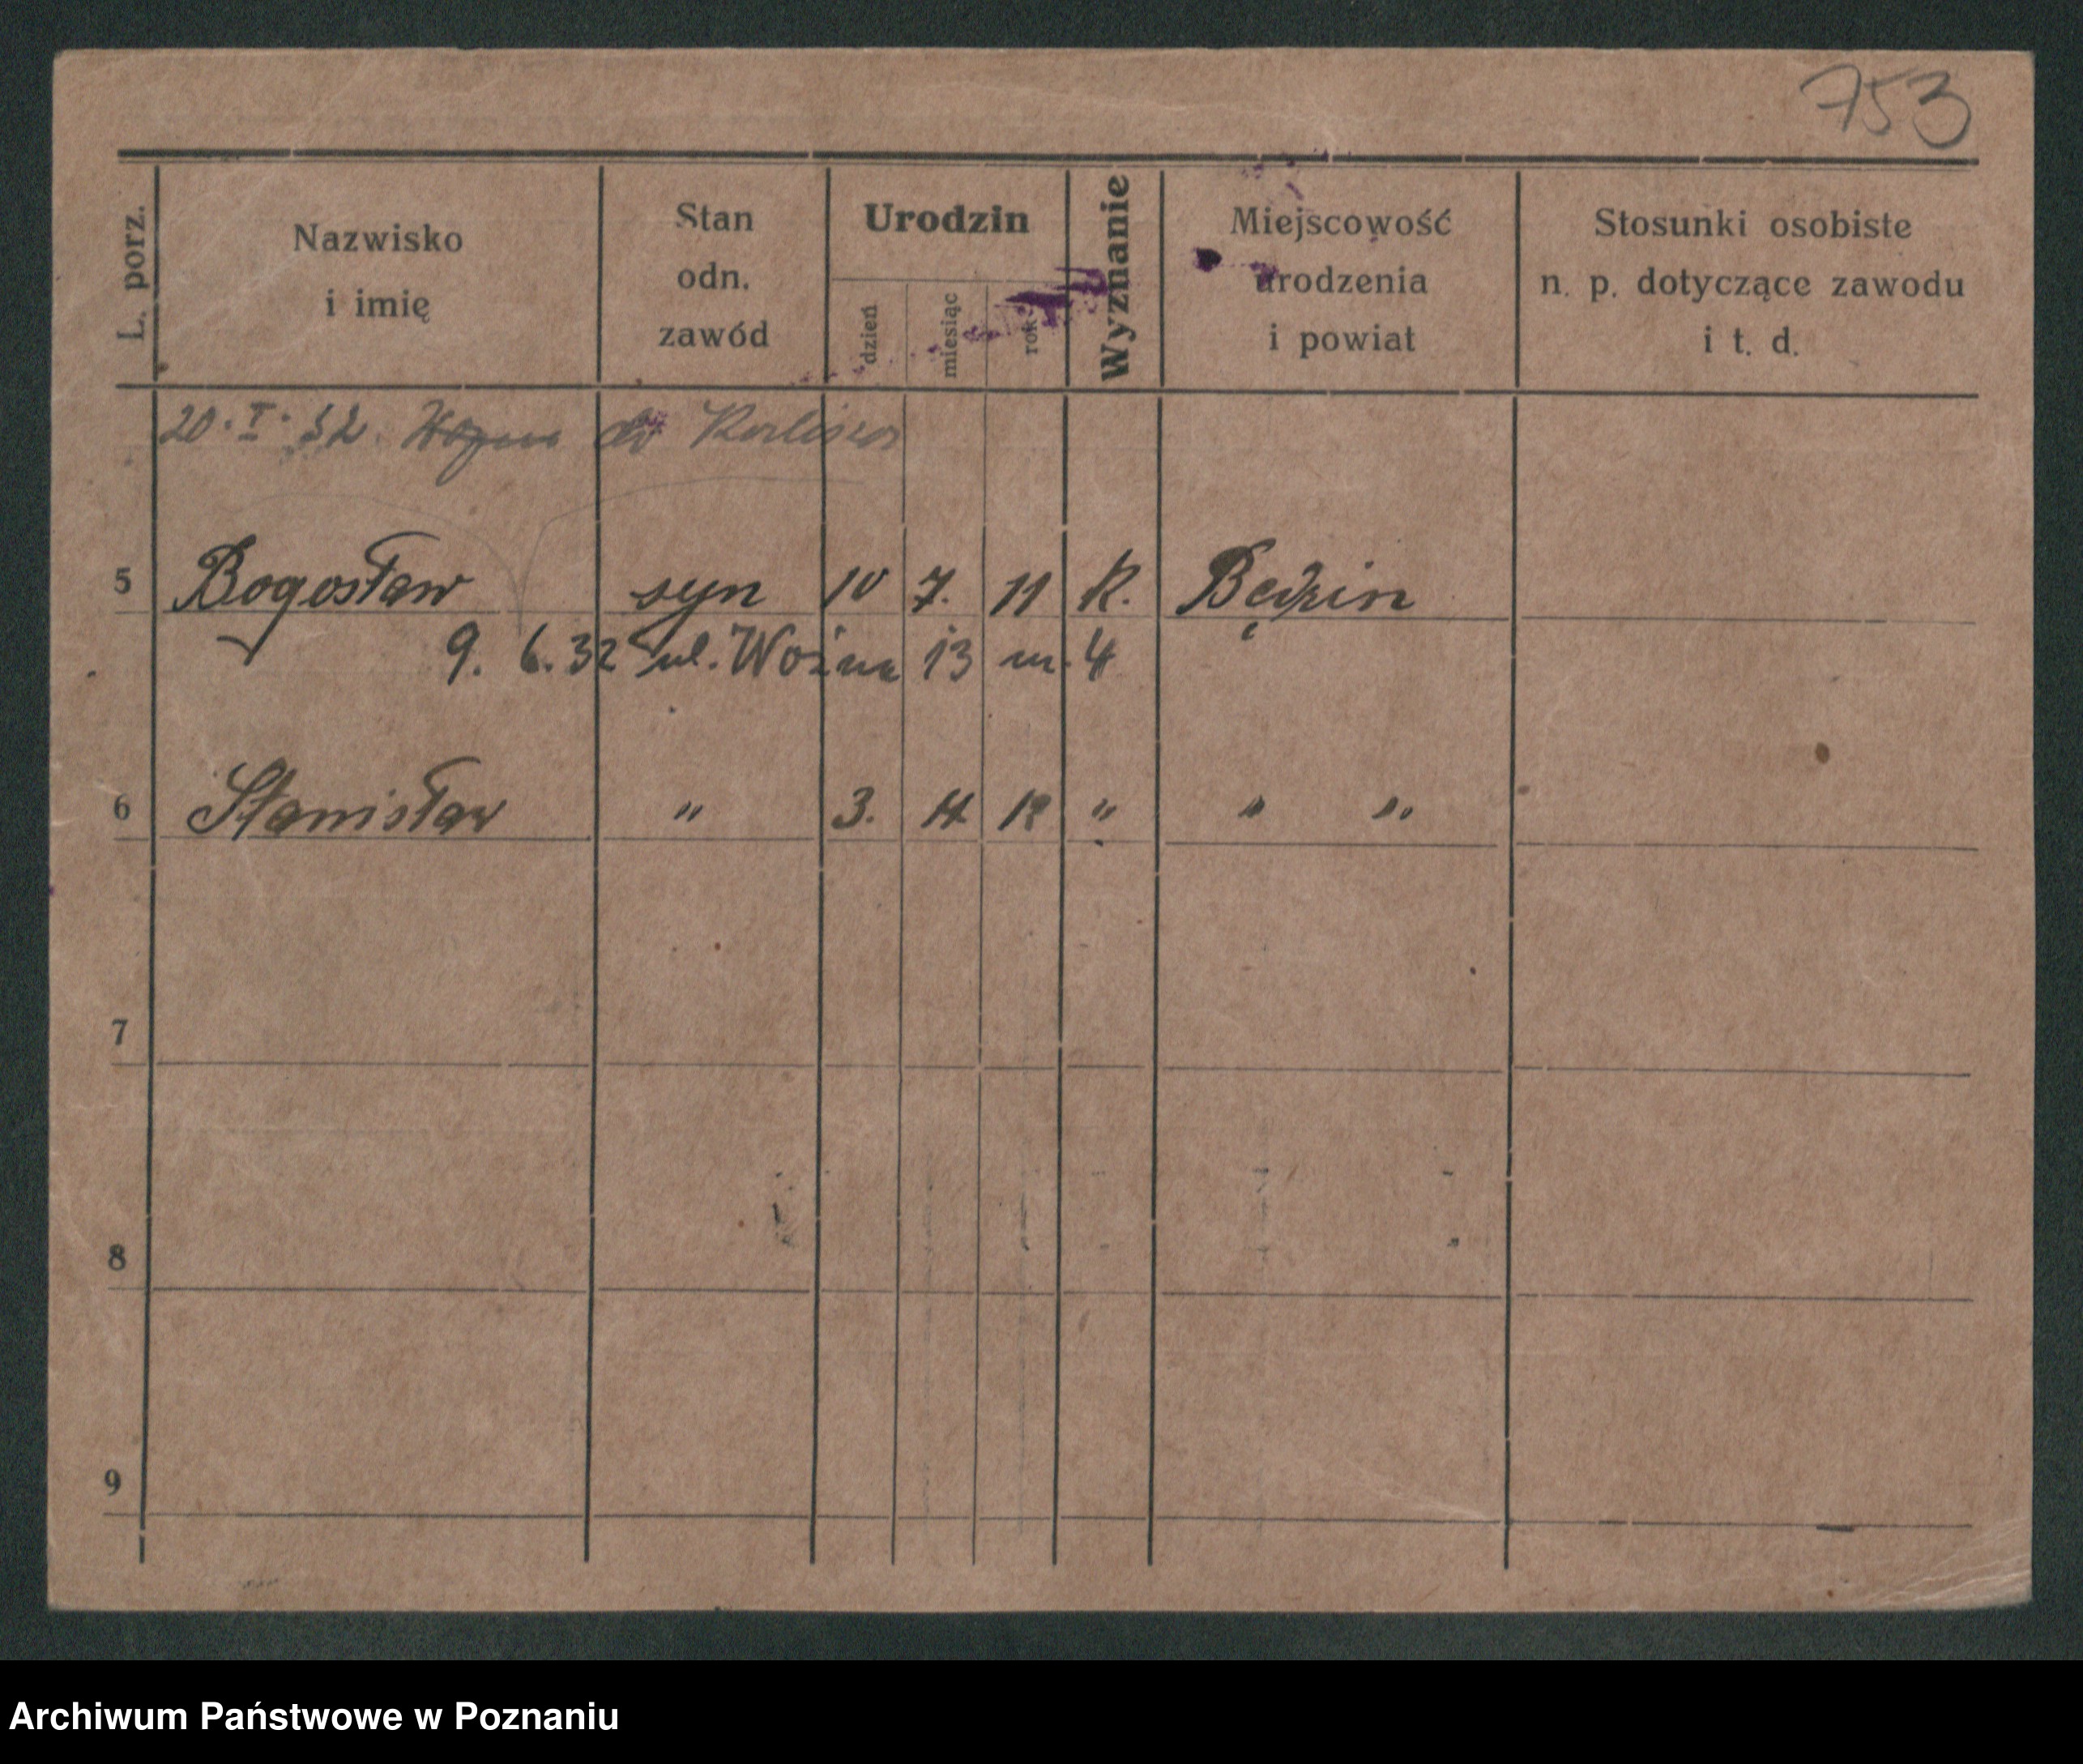 753
L. porz.
Nazwisko
i imię
Stan
odn.
zawód
Urodzin
dzień
miesiąc
rok
Wyznanie
Miejscowość
urodzenia
i powiat
Stosunki osobiste
n. p. dotyczące zawodu
i t. d.
20. I. 32. do Kalisza
5 Bogosław syn 10 7. 11 R. Będzin
9. 6. 32 ul. Woźna 13 m. 4
6 Stanisław " 3. " " "
7
8
9
Archiwum Państwowe w Poznaniu